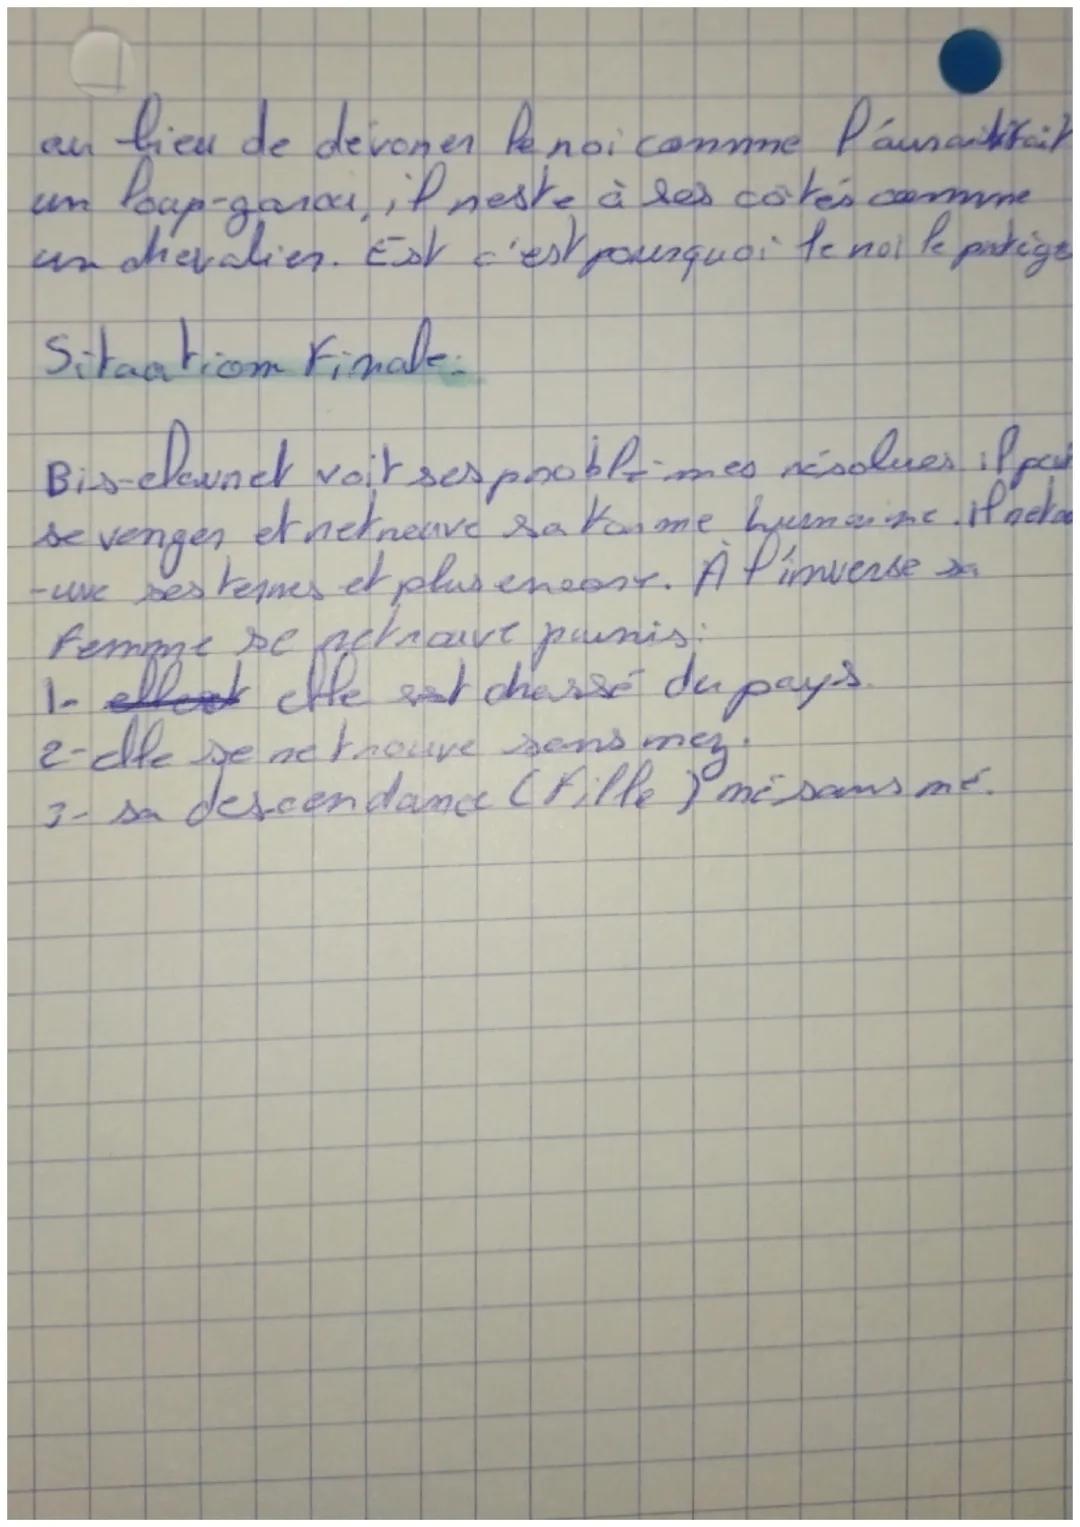 au lieu de dévorer le roi comme l'aurait fait
un loup-garou, il reste à ses côtés comme
un chevalier. Est c'est pourquoi le roi le protège
Situation Finale:
Bis-clavret voit ses problèmes résolues il peu
se venger et retreuve sa forme humaine. il retro
-uve ses terres et plus encore. À l'inverse sa
femme se retrouve punis:
1- elle est chassé du pays.
2- elle se retrouve sans nez.
3- sa descendance (fille) né sans né.